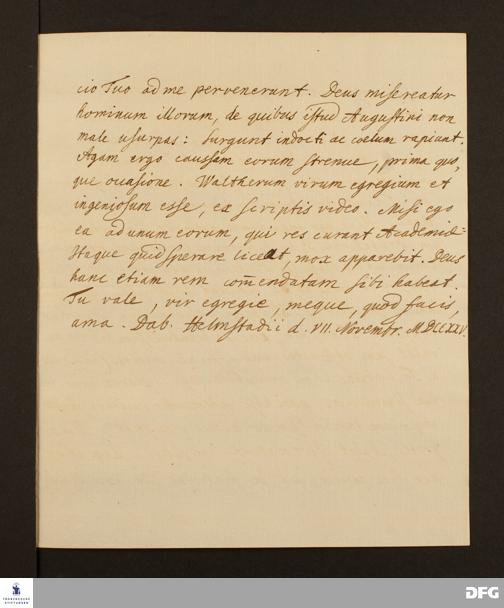 cio Tuo ad me pervenerunt. Deus misereatur
hominum illorum, de quibus istud Augustini non
male usurpas: surgunt indocti ac coelum rapiunt.
Agam ergo caussam eorum strenue, prima quo,
que ocasione. Waltherum virum egregium et
ingeniosum esse, ex scriptis video. Misi ego
ea ad unum eorum, qui res curant Academiae:
Itaque quid sperare liceat, mox apparebit. Deus
hanc etiam rem com̄endatam sibi habeat.
Tu vale, vir egregie, meque, quod facis,
ama. Dab. Helmstadii d. VII. Novembr. MDCCXXV.
FRANCKESCHE
STIFTUNGEN
DFG